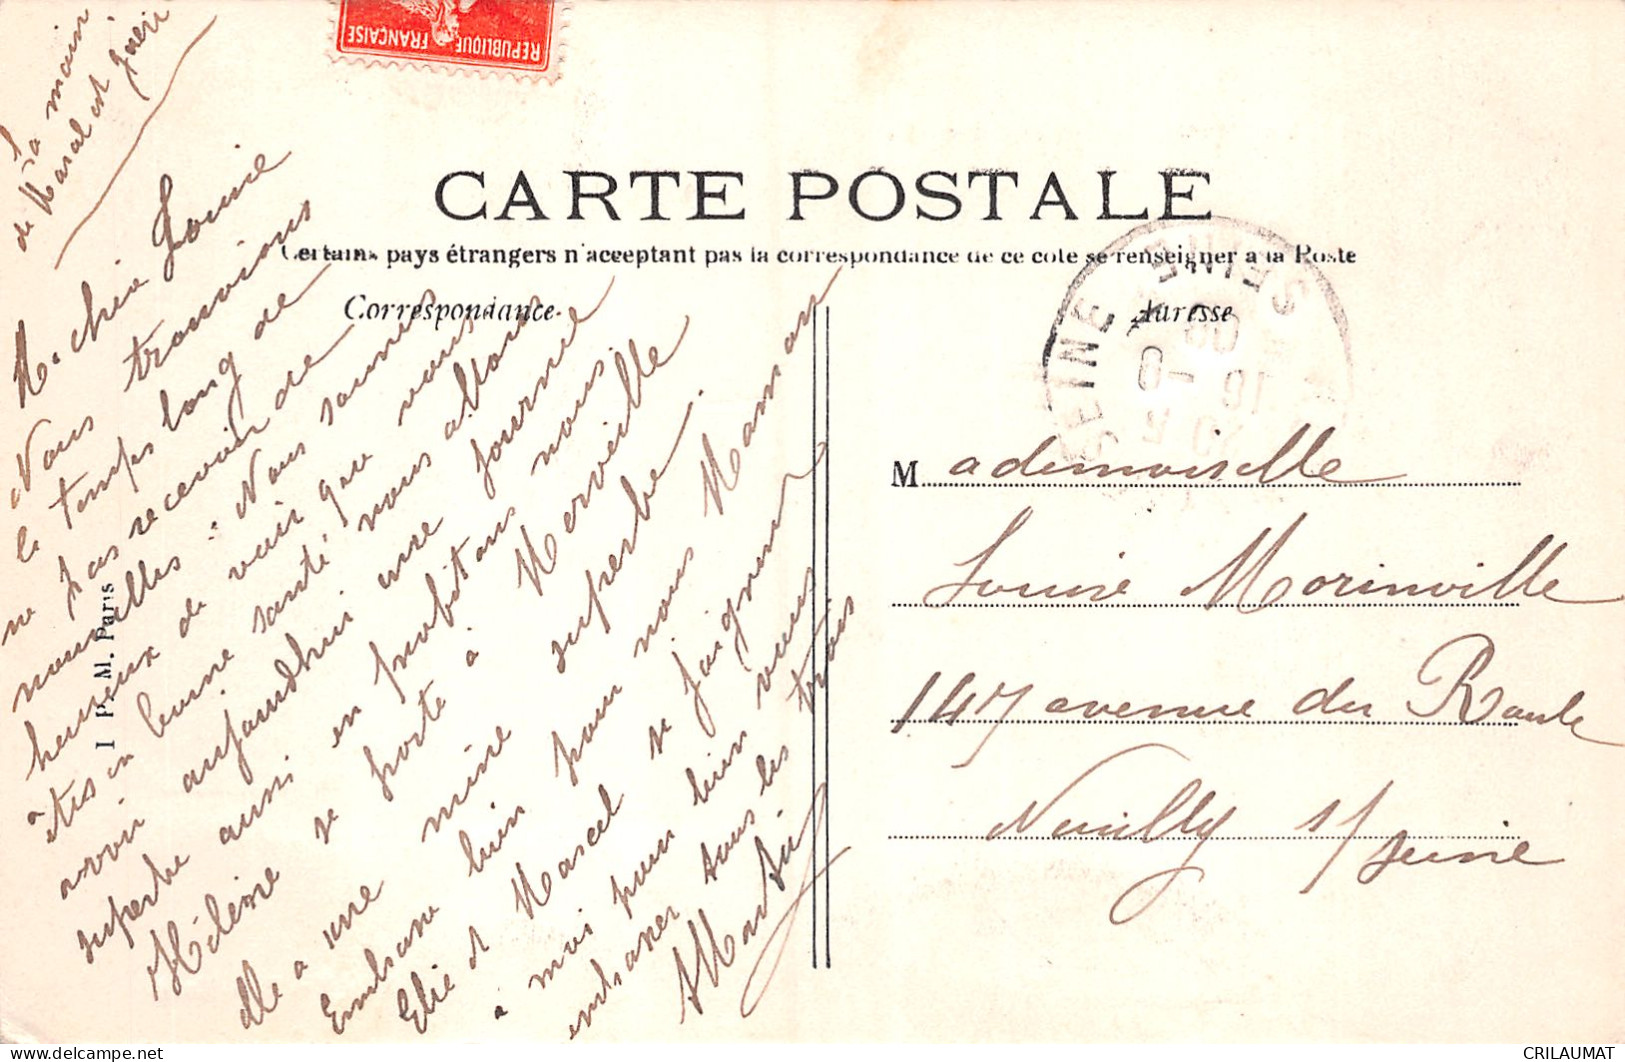 La main
de Marcel est guéri
REPUBLIQUE FRANÇAISE
CARTE POSTALE
Certains pays étrangers n'acceptant pas la correspondance de ce côté se renseigner à la Poste
Correspondance
Adresse
M. chère Louise
Nous trouvions
le temps long de
ne pas recevoir de
nouvelles. Nous sommes
heureux de voir que vous
êtes en bonne santé nous allons
avoir aujourdhui une journée
superbe aussi en profitons nous.
Hélène se porte à Merveille
elle a une mine superbe.
Embrasse bien pour nous Maman
Elie et Marcel se joignent
à moi pour bien vous
embrasser tous les trois
Martin
SEINE
SEINE
09
Mademoiselle
Louise Morinville
147 avenue du Roule
Neuilly s/ Seine
I P. M. Paris
CRILAUMAT